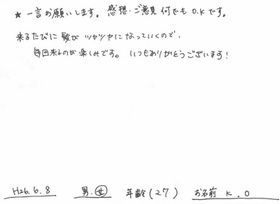 ★ 一言お願いします。感想・ご意見何でもO.Kです。
来るたびに髪がツヤツヤになっていくので、
毎回来るのが楽しみです。いつもありがとうございます!
H26. 6. 8 男・女 年齢(27) お名前 K. O